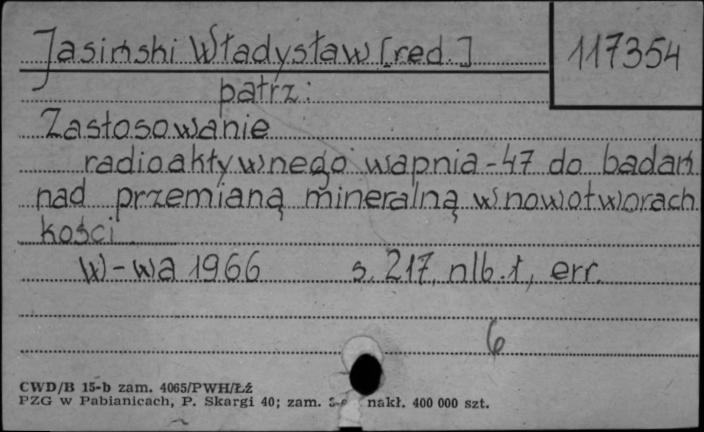 Jasiński Władysław [red.]
117354
patrz:
Zastosowanie
radioaktywnego wapnia-47 do badań
nad przemianą mineralną w nowotworach
kości
W-wa 1966 s. 217, nlb. 1, err.
6
CWD/B 15-b zam. 4065/PWH/Łź
PZG w Pabianicach, P. Skargi 40; zam. nakł. 400 000 szt.